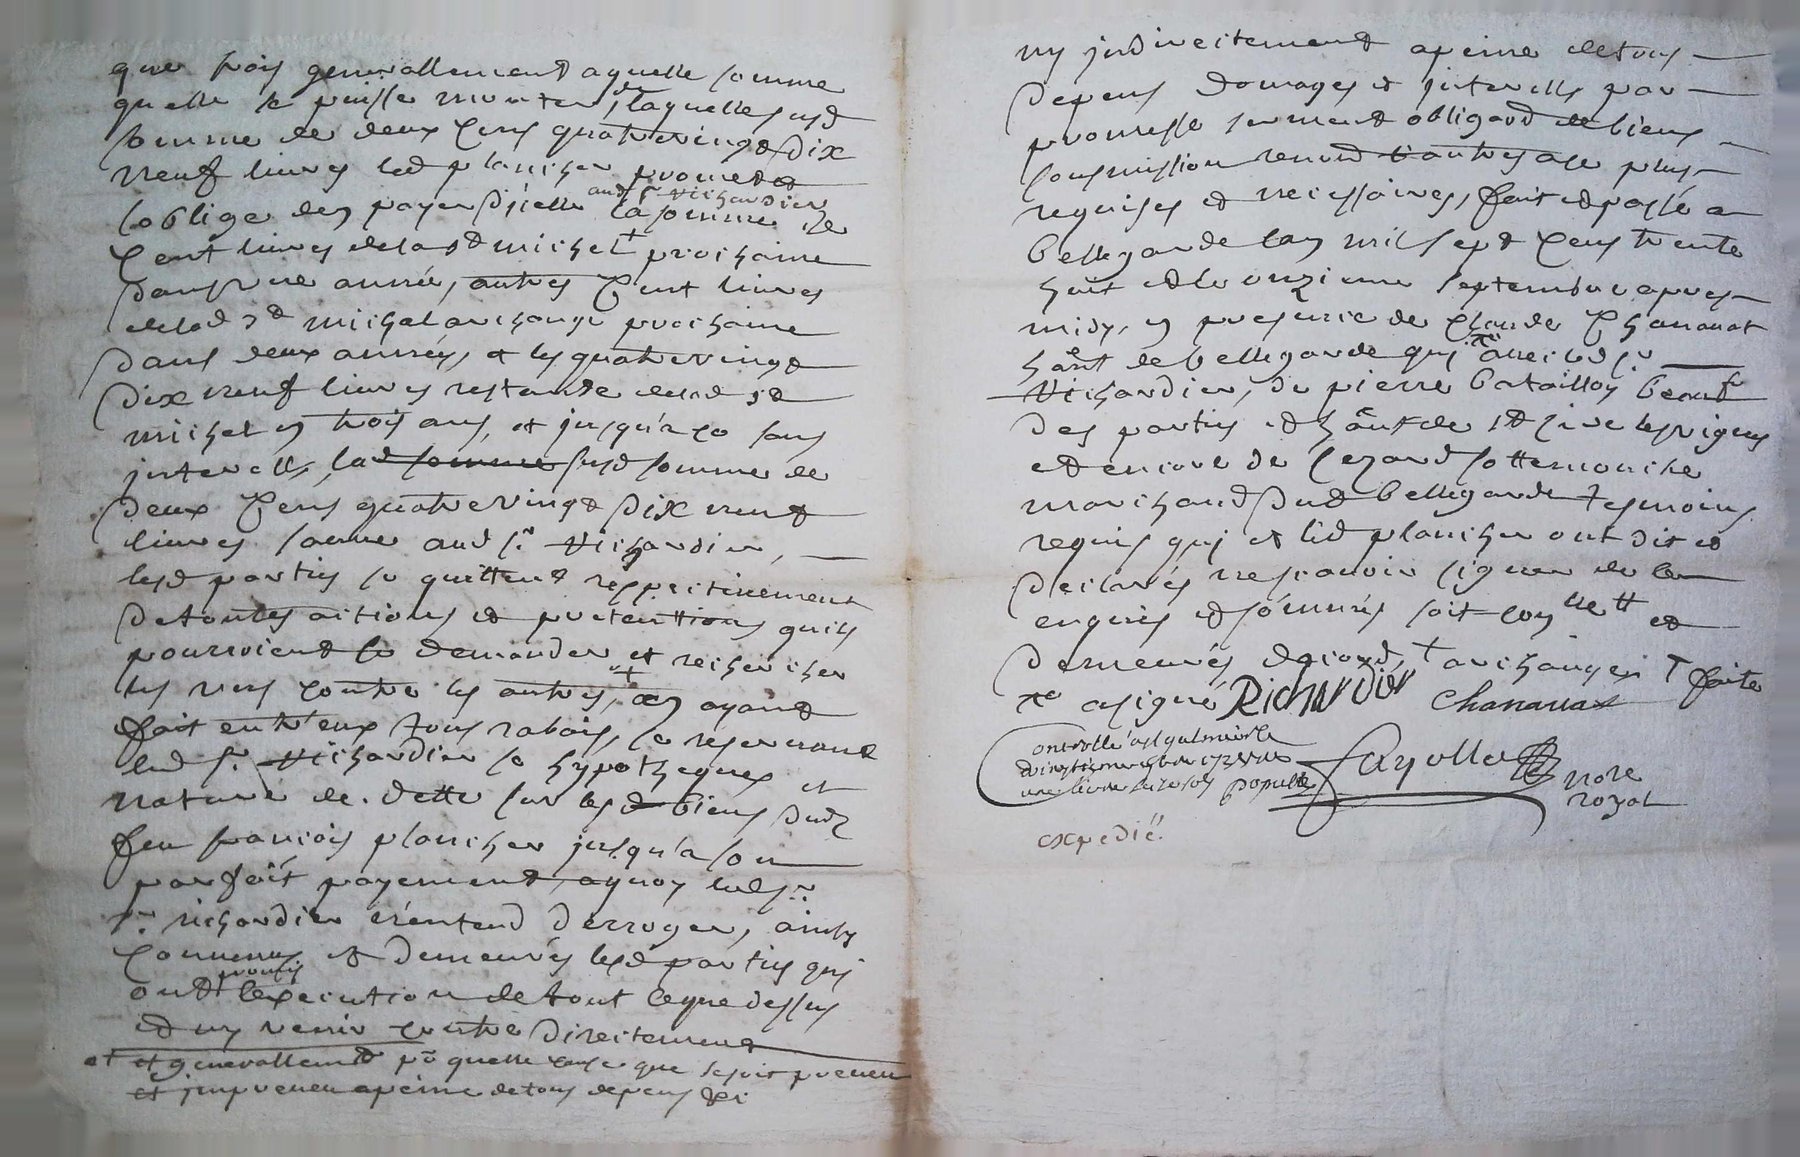 que frais generallement aquelle somme
quelle se puisse monter, laquelle susd
somme de deux cens quatrevingt dix
neuf livres led plancher promet et
aud sr Richardier
soblige den payer dicelle la somme de
cent livres de la st michel + prochaine
dans une année, autres cent livres
de lad st michel archange prochaine
dans deux années, et les quatrevingt
dix neuf livres restante de lad st
michel en trois ans, et jusqu'a ce sans
interells, lad somme susd somme de
deux cens quatrevingt dix neuf
livres aud sr Richardier,
lesd parties se quittent respectivement
de toutes actions et pretentions quils
pourroient se demander et rechercher
les uns contre les autres, + en ayant
fait entr'eux tous rabais, se reservant
led sr Richardier ses hypotheques et
nature de dette sur les d biens dud
feu francois plancher jusqu'a son
parfait payement, aquoy led sr
sr richardier n'entend derroger, ainsy
convenus et demeurés lesd parties qui
promis
ont lexecution de tout ceque dessus
et ny venir contre directement
et generallement po quelle cause que se soit preveu
et impreveu apeine de tous depens &c
ny indirectement apeine de tous
depens domages et interells par
promesse serment obligaon de biens
soumission renon et autres ase plus
requises et necessaires, fait et passé a
bellegarde lan mil sept cens trente
huit et le onzieme septembre apres
midy, en presence de claude Chanavat
hânt de bellegarde qui a avec led sr
Richardier, de pierre bataillon
des parties et hânt de st les vignes
et encore de sottemouche
marchand dud bellegarde tesmoins
requis qui et led plancher ont dit et
declarés ne scavoir signer de ce
enquis et sommés soit conlle et
demeurés daccord, + archange + faite
a signé Richardier Chanavat
Controllé a st galmier le
septembre 1738
une livre sols
Fayolle nore
royal
expedié